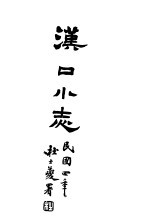 漢口小志
民國四年
署